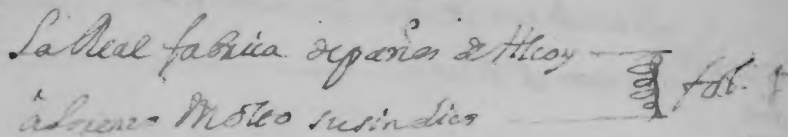 La Real fabrica de paños de Alcoy fol.
Moltó su sindico